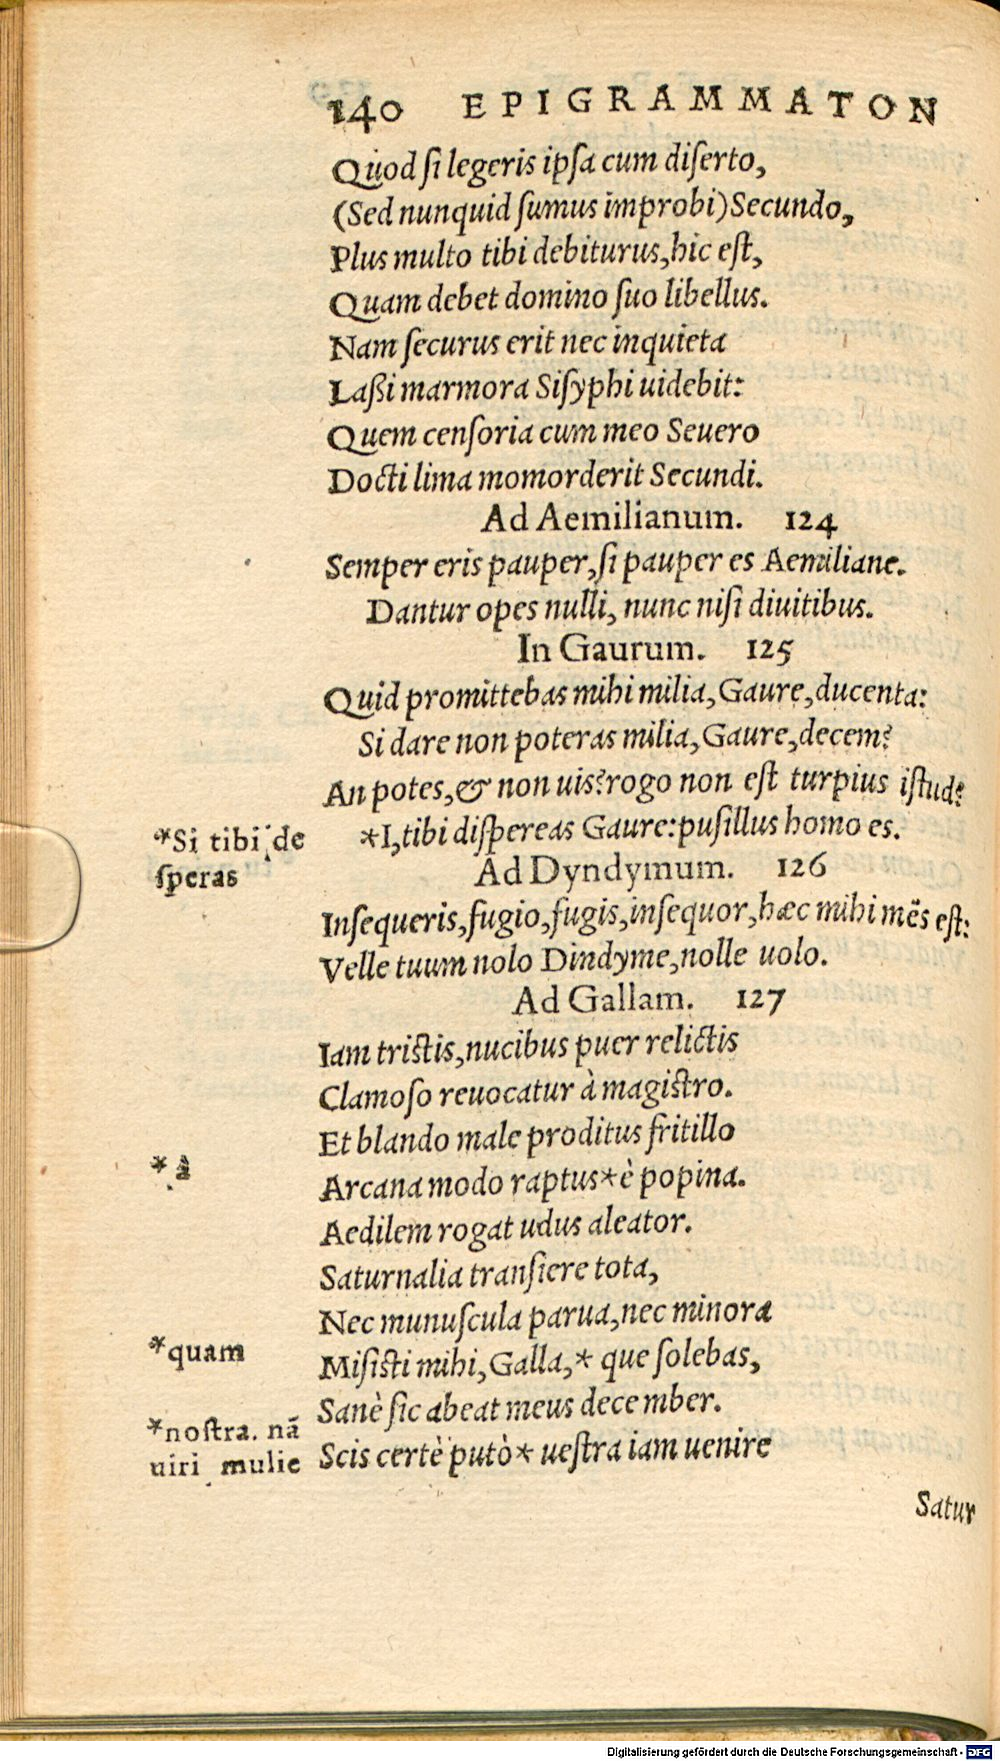 140 EPIGRAMMATON
Quod si legeris ipsa cum diserto,
(Sed nunquid sumus improbi) Secundo,
Plus multo tibi debiturus, hic est,
Quam debet domino suo libellus.
Nam securus erit nec inquieta
Laßi marmora Sisyphi uidebit:
Quem censoria cum meo Seuero
Docti lima momorderit Secundi.
Ad Aemilianum. 124
Semper eris pauper, si pauper es Aemiliane.
Dantur opes nulli, nunc nisi diuitibus.
In Gaurum. 125
Quid promittebas mihi milia, Gaure, ducenta:
Si dare non poteras milia, Gaure, decem?
An potes, & non uis? rogo non est turpius istud?
*Si tibi de
speras
*I, tibi dispereas Gaure: pusillus homo es.
Ad Dyndymum. 126
Insequeris, fugio, fugis, insequor, hæc mihi mēs est:
Velle tuum nolo Dindyme, nolle uolo.
Ad Gallam. 127
Iam tristis, nucibus puer relictis
Clamoso reuocatur à magistro.
Et blando male proditus fritillo
*à
Arcana modo raptus* è popina.
Aedilem rogat udus aleator.
Saturnalia transiere tota,
Nec munuscula parua, nec minora
*quam
Misisti mihi, Galla, * que solebas,
Sanè sic abeat meus december.
*nostra. nā
uiri mulie
Scis certè putò* uestra iam uenire
Satur
Digitalisierung gefördert durch die Deutsche Forschungsgemeinschaft - DFG